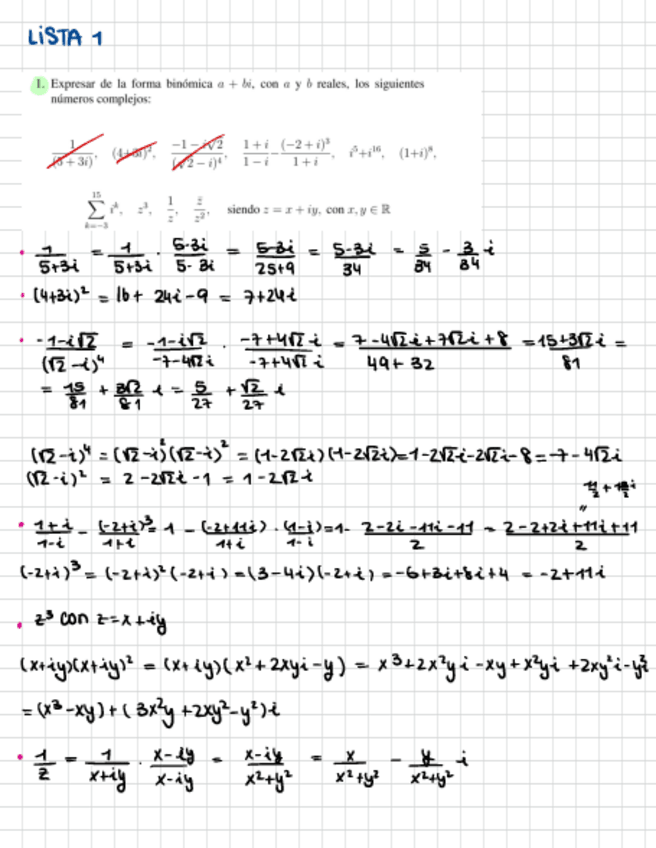 LISTA 1
1. Expresar de la forma binómica a + bi, con a y b reales, los siguientes
números complejos:
1/(5 + 3i), (4+3i)², (-1 - i√2)/(√2 - i)⁴, (1+i)/(1-i) - (-2+i)³/(1+i), i⁵+i¹⁶, (1+i)⁸,
∑_{k=-3}^{15} iᵏ, z³, 1/z, z̄/z², siendo z = x + iy, con x, y ∈ ℝ
• 1/(5+3i) = 1/(5+3i) · (5-3i)/(5-3i) = (5-3i)/(25+9) = (5-3i)/34 = 5/34 - 3/34 i
• (4+3i)² = 16 + 24i - 9 = 7+24i
• (-1-i√2)/(√2-i)⁴ = (-1-i√2)/(-7-4√2i) · (-7+4√2i)/(-7+4√2i) = (7-4√2i+7√2i+8)/(49+32) = (15+3√2i)/81 =
= 15/81 + 3√2/81 i = 5/27 + √2/27 i
(√2-i)⁴ = (√2-i)²(√2-i)² = (1-2√2i)(1-2√2i) = 1-2√2i-2√2i-8 = -7-4√2i
(√2-i)² = 2-2√2i-1 = 1-2√2i
• (1+i)/(1-i) - (-2+i)³/(1+i) = 1 - (-2+11i)/(1+i) · (1-i)/(1-i) = 1- (2-2i-11i-11)/2 = (2-2+2i+11i+11)/2
(-2+i)³ = (-2+i)²(-2+i) = (3-4i)(-2+i) = -6+3i+8i+4 = -2+11i
• z³ con z=x+iy
(x+iy)(x+iy)² = (x+iy)(x²+2xyi-y) = x³+2x²yi-xy+x²yi+2xy²i-y²i
= (x³-xy)+(3x²y+2xy²-y²)i
• 1/z = 1/(x+iy) · (x-iy)/(x-iy) = (x-iy)/(x²+y²) = x/(x²+y²) - y/(x²+y²) i